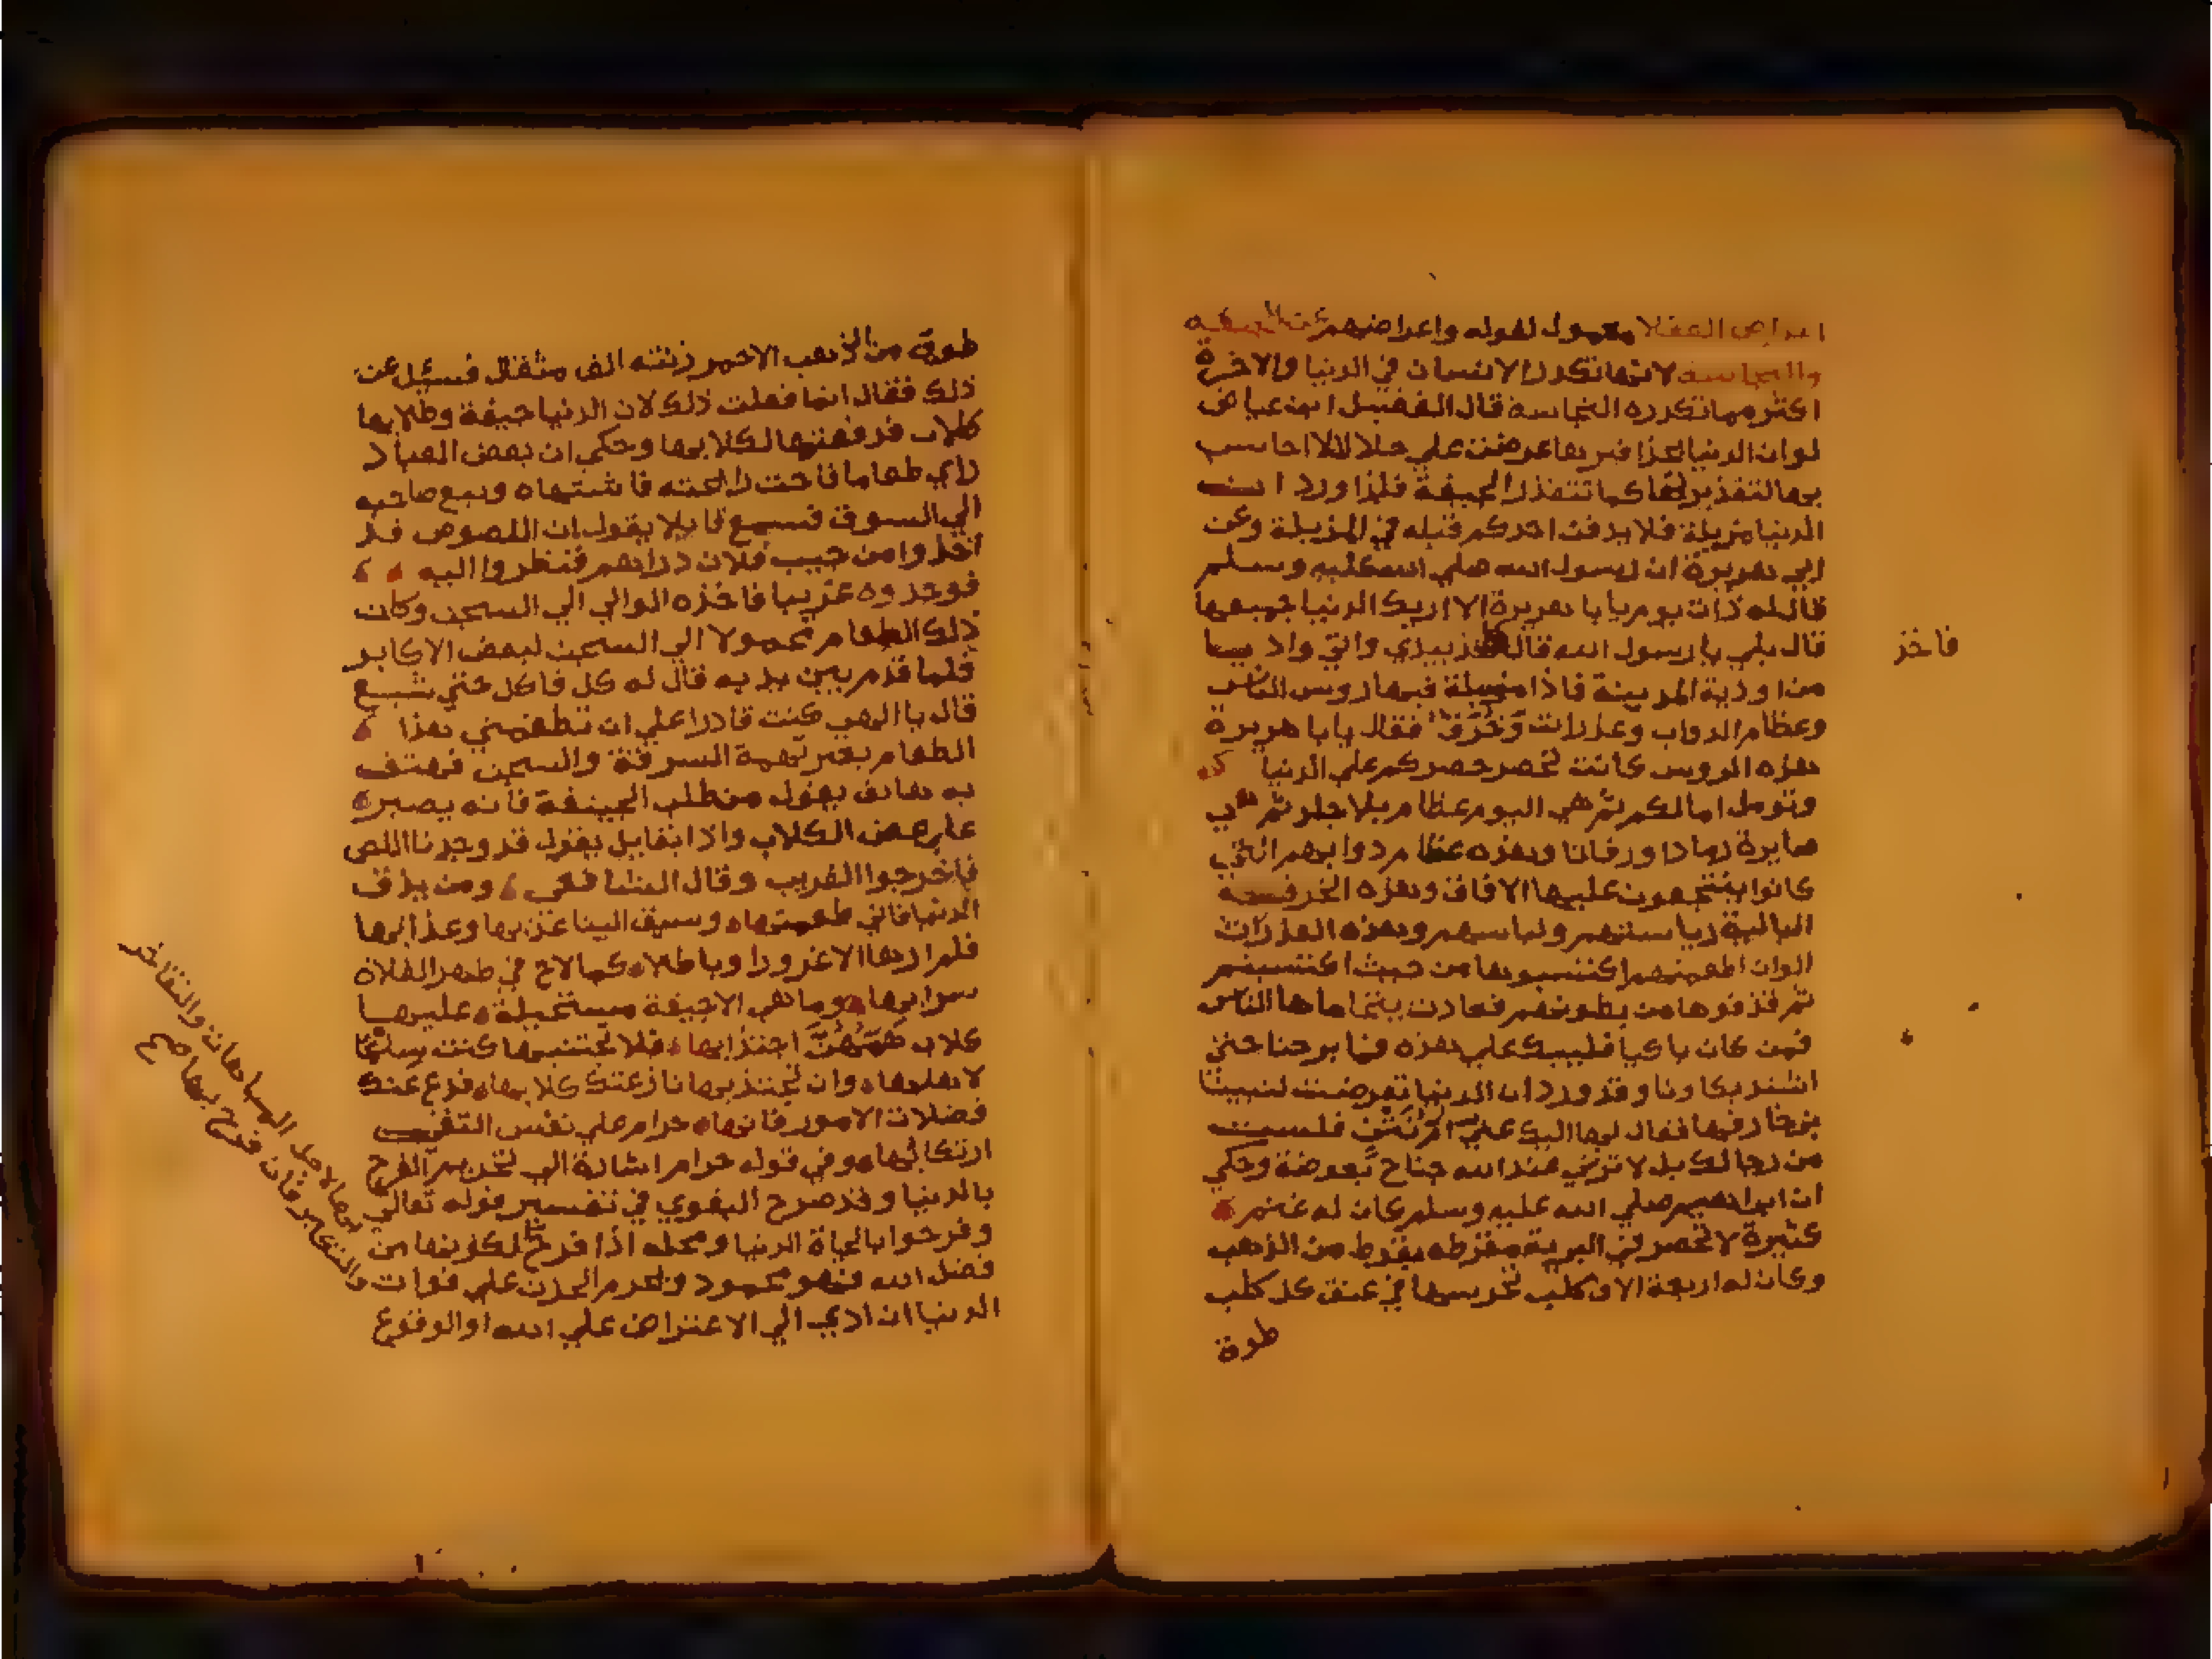 اعراض العقلا معمول لقوله واعراضهم عن الجيفه
والنجاسه لانها تكدر الانسان في الدنيا والاخرة
اكثر مما تكدره النجاسة قال الفضيل ابن عياض
لو ان الدنيا بحذافيرها عرضت علي حلالا لا احاسب
بها لتقذرتها كما تتقذر الجيفة فلذا ورد
الدنيا مزبلة فلا يدفن احدكم قبله في المزبلة وعن
ابي هريرة ان رسول الله صلي الله عليه وسلم
قال له ذات يوم يا با هريرة الا اريك الدنيا جميعها
قال بلي يا رسول الله قال بيدي واتي واديا
فاخذ
من اودية المدينة فاذا مزبلة فيها روس الناس
وعظام الدواب وعذرات وخرق فقال يا با هريرة
هذه الروس كانت تحصر حصركم علي الدنيا
وتومل امالكم ثم هي اليوم عظام بلا جلد ثم هي
صايرة رمادا ورفاتا وهذه عظام دوابهم التي
كانوا ينتجعون عليها الافاق وهذه الخرق
البالية رياستهم ولباسهم وهذه العذرات
الوان اطعمتهم اكتسبوها من حيث اكتسبتم
ثم قذفوها من بطونهم فعادت يتحاماها الناس
فمن كان باكيا فليبك علي هذه فما برحنا حتي
اشتد بكاونا وقد ورد ان الدنيا تعرضت لنبينا
بزخارفها فقال لها اليك عني فلست
من رجالك بل لا تزني عند الله جناح بعوضة وحكي
ان ابراهيم صلي الله عليه وسلم كان له غنم
كثيرة لا تحصر في البرية
وكان له اربعة الاف كلب تحرسها في عنق كل كلب
طوق
طوق من الذهب الاحمر زنته الف مثقال فسئل عن
ذلك فقال انما فعلت ذلك لان الدنيا جيفة وطلابها
كلاب فدفعتها لكلابها وحكي ان بعض العباد
راي طعاما فاحت رائحته فاشتهاه وتبع صاحبه
الي السوق فسمع قايلا يقول ان اللصوص قد
اخذوا من جيب فلان دراهم فنظروا اليه
فوجدوه غريبا فاخذه الوالي الي السجن وكان
ذلك الطعام محمولا الي السجن لبعض الاكابر
فلما قدم بين يديه قال له كل فاكل حتي شبع
قال يا الهي كنت قادرا علي ان تطعمني هذا
الطعام بغير تهمة السرقة والسجن فهتف
به هاتف يقول من طلب الجيفة فانه يصبر
علي عض الكلاب واذا بقايل يقول قد وجدنا اللص
فاخرجوا الغريب وقال الشافعي ومن يذق
الدنيا فاني طعمتها وسيق الينا عذبها وعذابها
فلم ارها الا غرورا وباطلا كما لاح في ظهر الفلاة
سرابها وما هي الا جيفة مستحيلة عليها
كلاب همهن اجتذابها فلا تجتنبها كنت سلما
لاهلها وان تجتذبها نازعتك كلابها فدع عنك
فضلات الامور فانها حرام علي نفس التقي
ارتكابها وفي قوله حرام اشارة الي تحريم الفرح
بالدنيا وقد صرح البغوي في تفسير قوله تعالي
وفرحوا بالحياة الدنيا ومحله اذا فرح
بها لاجل المباهات والتفاخر
والتكبر فان فرح بها صح
لكونها من
فضل الله فهو محمود ويحرم الحزن علي فوات
الدنيا ان ادي الي الاعتراض علي الله او الوقوع